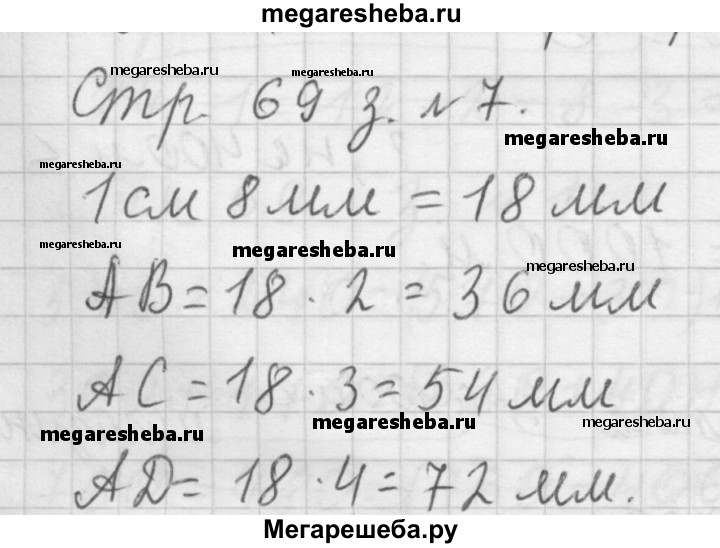 megaresheba.ru
megaresheba.ru
megaresheba.ru
Стр. 69 з. № 7.
megaresheba.ru
megaresheba.ru
1 см 8 мм = 18 мм
megaresheba.ru
megaresheba.ru
megaresheba.ru
AB = 18 · 2 = 36 мм
AC = 18 · 3 = 54 мм
megaresheba.ru
megaresheba.ru
megaresheba.ru
AD = 18 · 4 = 72 мм.
Мегарешеба.ру